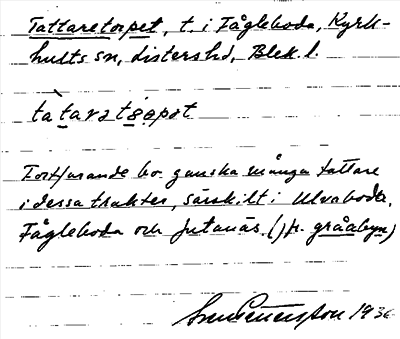 Tattaretorpet, t. i Fågleboda, Kyrk-
hults sn, Listers hd, Blek. l.
tàtarətǫrpət
Fortfarande bo ganska många tattare
i dessa trakter, särskilt i Ulvaboda,
Fågleboda och Jutanäs. (Jr. gråabyn)
1936